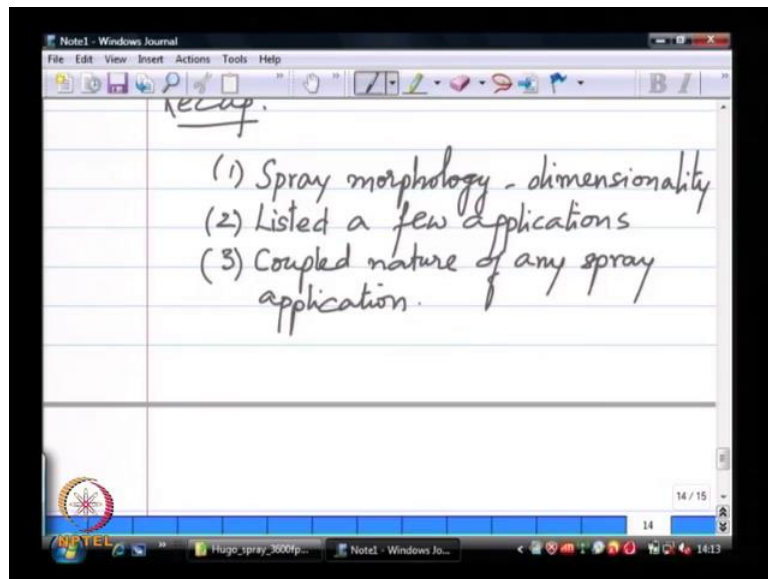 Note1 - Windows Journal
File Edit View Insert Actions Tools Help
B I
Recap.
(1) Spray morphology - dimensionality
(2) Listed a few applications
(3) Coupled nature of any spray
application.
14 / 15
14
NPTEL
Hugo_spray_3600fp...
Note1 - Windows Jo...
14:13